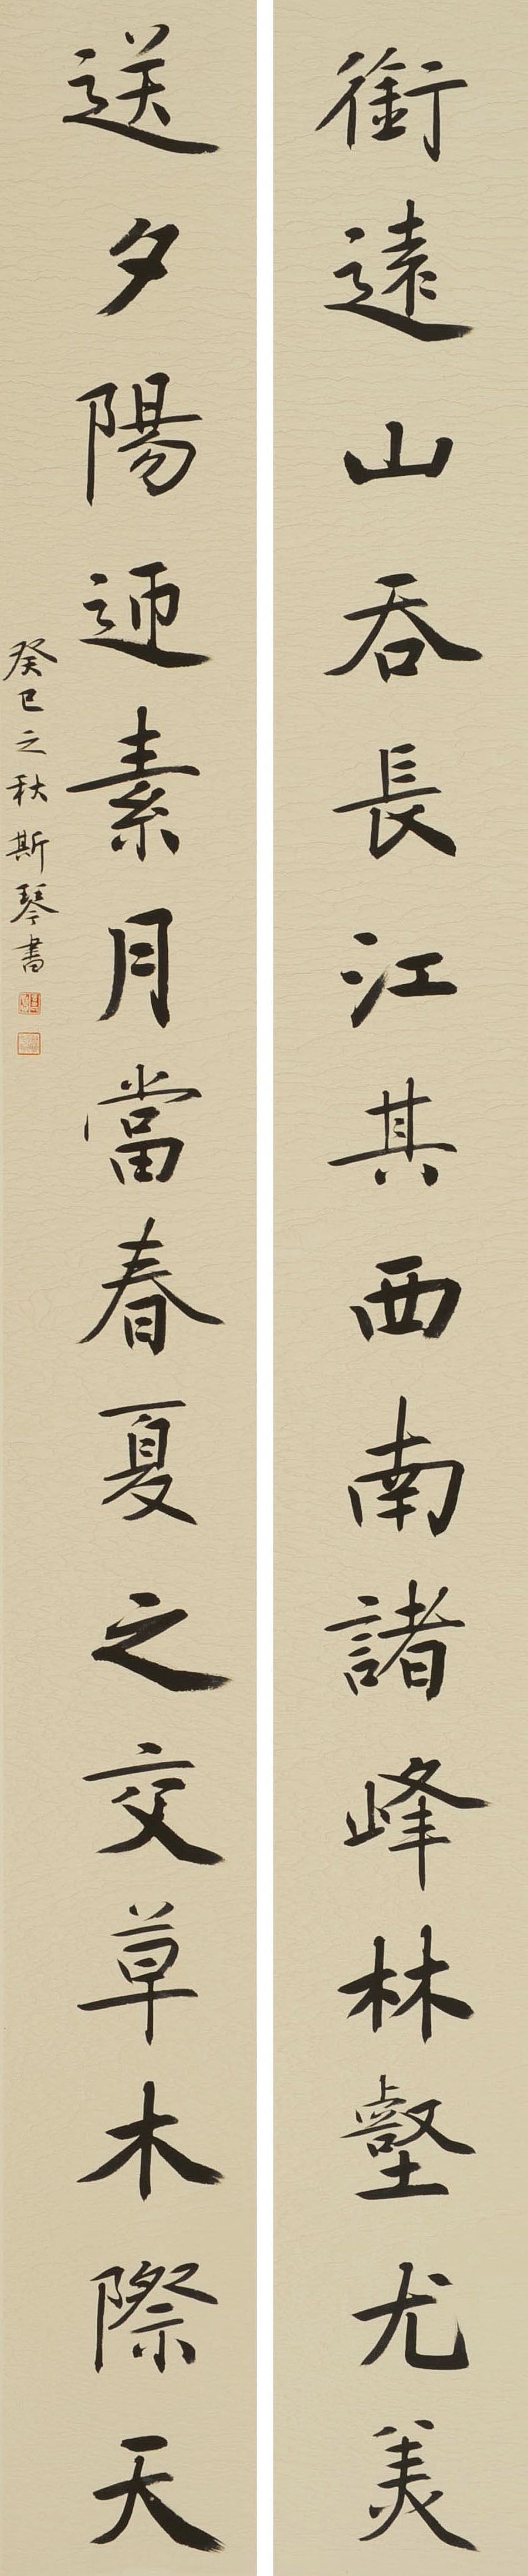 銜遠山吞長江其西南諸峰林壑尤美
送夕陽迊素月當春夏之交草木際天
癸巳之秋斯琴書